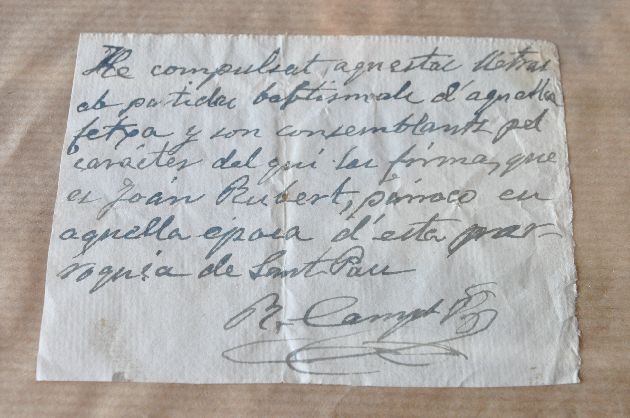 He compulsat aquestas lletras
ab partidas baptismals d'aquella
fetxa y son consemblants pel
carácter del qui las firma, que
es Joán Rubert, párroco en
aquella época d'esta par-
róquia de Sant Pau
R. Campt